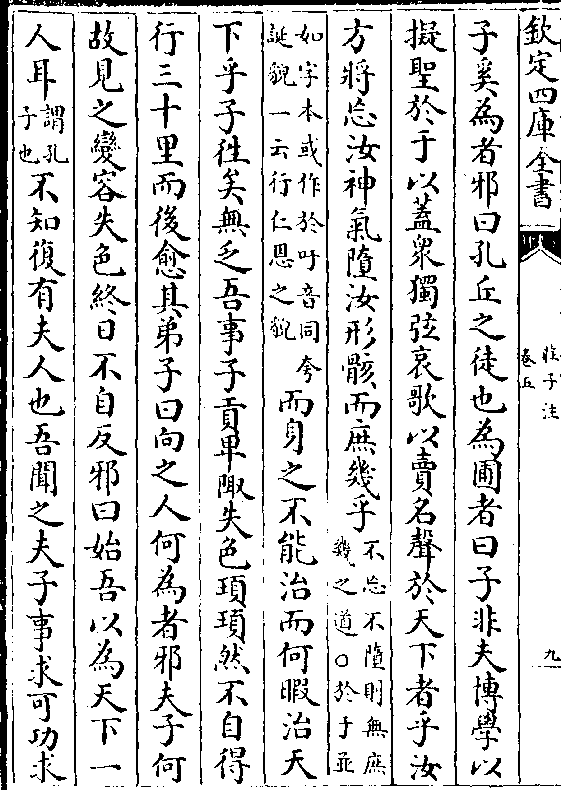 欽定四庫全書
莊子注
卷五
九
子奚為者邪曰孔丘之徒也為圃者曰子非夫博學以
擬聖於于以蓋衆獨弦哀歌以賣名聲於天下者乎汝
方將忘汝神氣隳汝形骸而庶幾乎
不忘不隳則無庶
幾之道○於于並
如字本或作於吁音同夸
誕貌一云行仁恩之貌
而身之不能治而何暇治天
下乎子往矣無乏吾事子貢卑陬失色頊頊然不自得
行三十里而後愈其弟子曰向之人何為者邪夫子何
故見之變容失色終日不自反邪曰始吾以為天下一
人耳
謂孔
子也
不知復有夫人也吾聞之夫子事求可功求